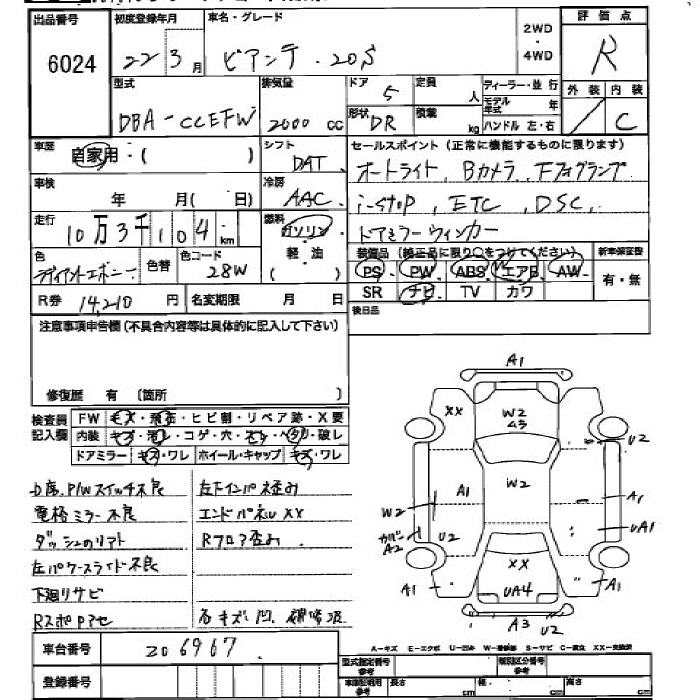 出品番号
6024
初度登録年月
22 3月
車名・グレード
ビアンテ . 20S
2WD
・
4WD
評価点
R
外装 内装
/ C
型式
DBA-CCEFW
排気量
2000 cc
ドア 5
形状 DR
定員 人
積載 kg
ディーラー・並行
モデル年式 年
ハンドル 左・右
車歴 自家用・( )
シフト DAT
車検 年 月( 日)
冷房 AAC
走行 10万3千104 km
燃料 ガソリン・軽・油
色 ラディアントエボニー
色替
色コード 28W
R券 14,210 円
名変期限 月 日
セールスポイント (正常に機能するものに限ります)
オートライト, Bカメラ, Fフォグランプ
i-stop, ETC, DSC,
ドアミラーウィンカー
装備品 (純正品に限り○をつけてください)
新車保証書
PS PW ABS エアB AW
SR ナビ TV カワ
有・無
後日品
注意事項申告欄(不具合内容等は具体的に記入して下さい)
修復歴 有 (箇所 )
検査員記入欄
FW キズ・飛石・ヒビ割・リペア跡・X要
内装 キズ・汚レ・コゲ・穴・スレ・ヘタリ・破レ
ドアミラー キズ・ワレ ホイール・キャップ キズ・ワレ
D席P/Wスイッチ不良
電格ミラー不良
左パワースライド不良
下廻りサビ
左下インパネ歪み
エンドパネルXX
Rフロア歪み
各キズ凹
A1
XX
W2
ムラ
U2
W2
A1
A1
W2
カバン
A2
U2
UA1
XX
A1
UA4
A1
A3
U2
車台番号 206967
登録番号
A-キズ E-エクボ U-凹み W-補修跡 S-サビ C-腐食 XX-交換済
型式指定番号 参考
類別区分番号 参考
車庫証明用 参考
長さ cm
幅 cm
高さ cm